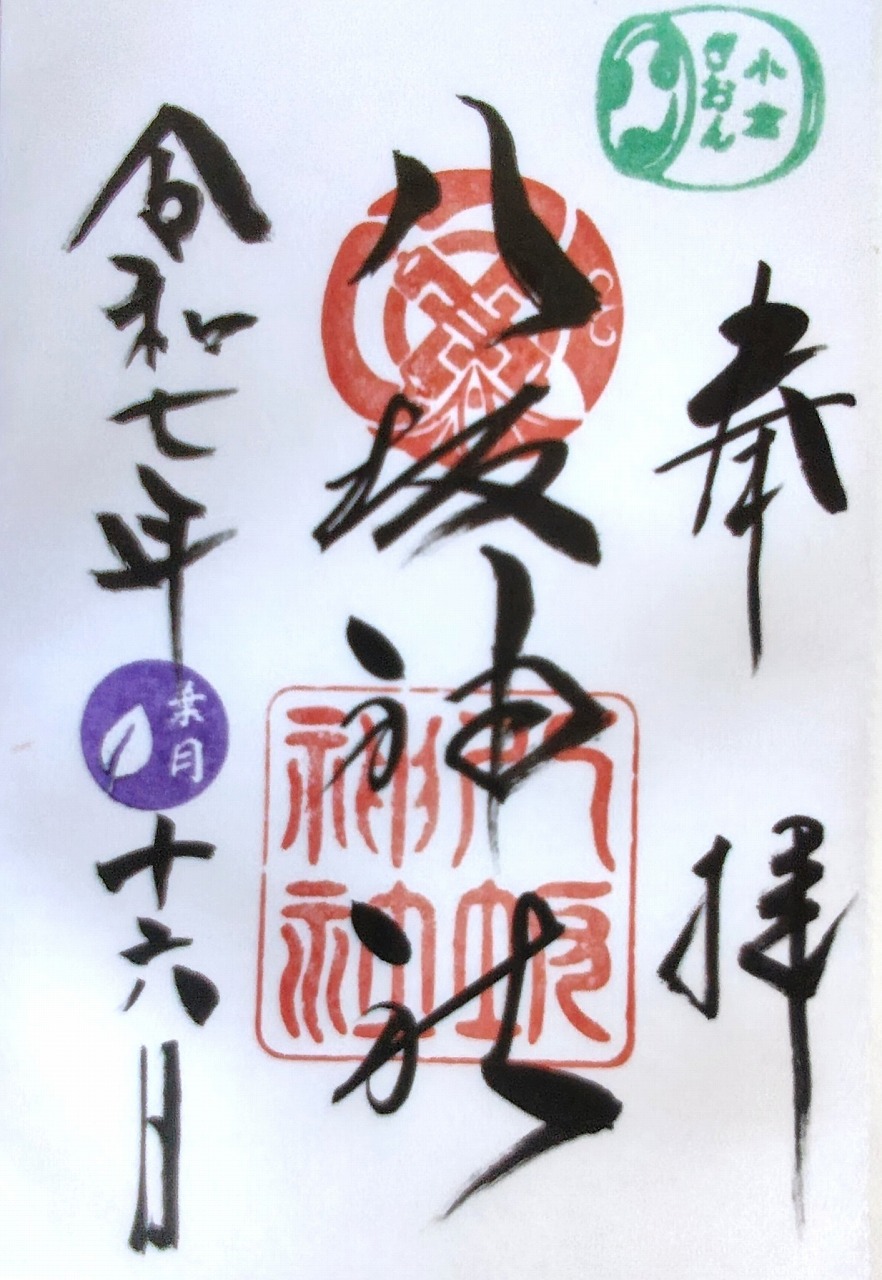 小倉
ぎおん
奉拝
八坂神社
八坂
神社
令和七年
葉月
十六日